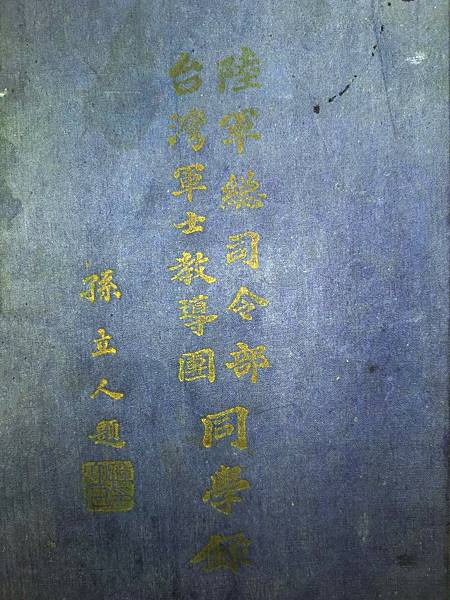 陸軍總司令部
台灣軍士教導團
同學錄
孫立人題